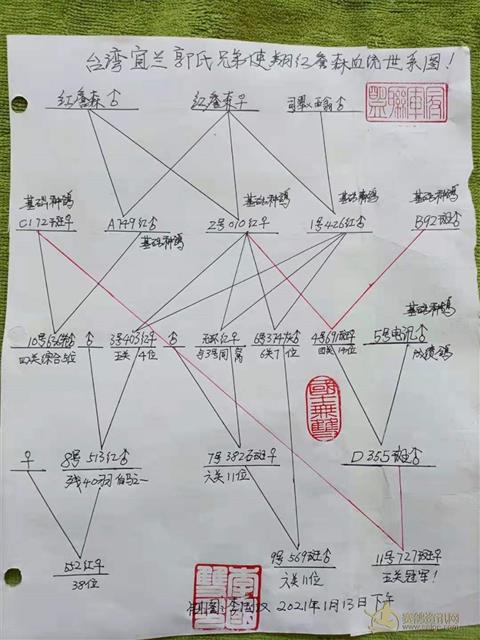 台湾宜兰郭氏兄弟使翔红詹森血统世系图!
红詹森♂ 红詹森♀ 司翠西翁♂
基础种鸽 基础种鸽 基础种鸽 基础种鸽
C172斑♀ A749红♂ 2号010红♀ 1号426红♂ B92斑♂
基础种鸽
基础种鸽
10号 ♂ 3号403红♀ ♂ 红♀ 6号374灰♂ 4号691斑♀ 5号电讯♂
四关综合 位 五关4位 与3号同窝 6关7位 四关14位 成绩鸽
♀ 8号513红♂ 7号382石斑♀ D355斑♂
残40羽 白马之一 六关11位
552红♀ 9号569斑♂ 11号727斑♀
38位 六关11位 五关冠军!
国士无双
制图:李 汉 2021年1月13日下午
赛鸽资讯网